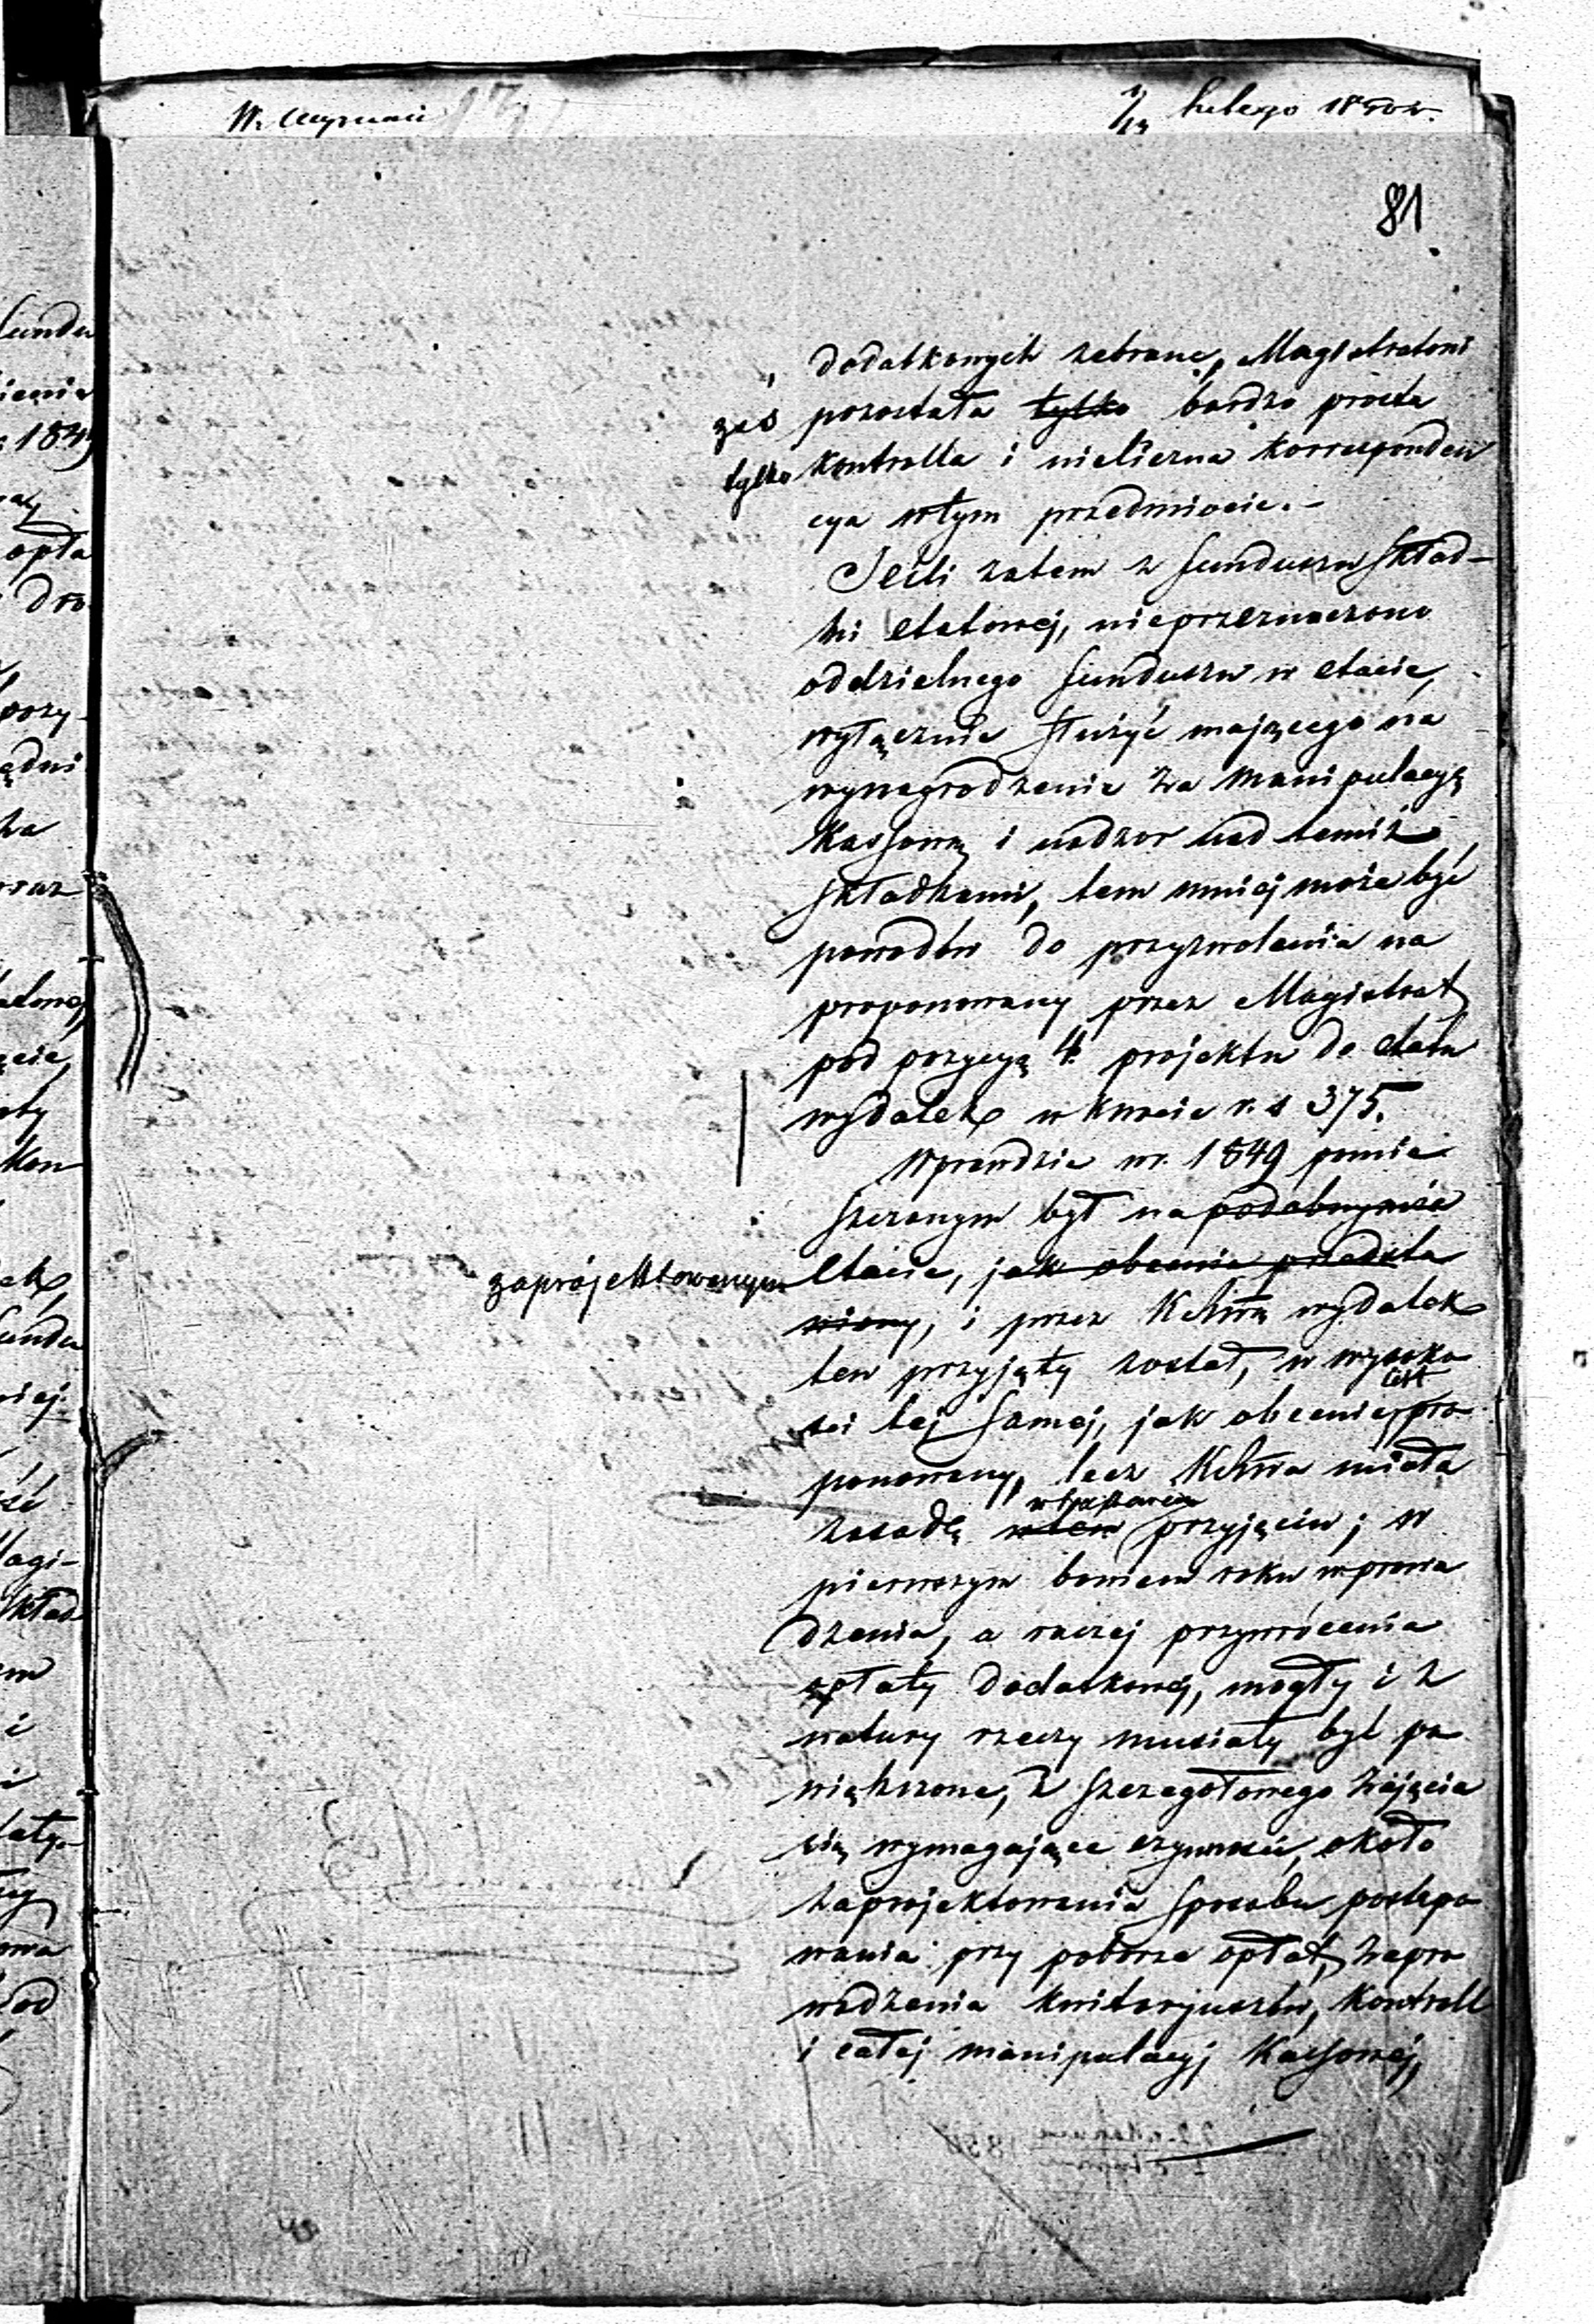 1/13 lutego 1850 r.
81
dodatkowych zebrane, Magistratowi
zaś pozostała tylko bardzo prosta
tylko kontrolla i nieliczna korresponden
cya w tym przedmiocie. -
Jeśli zatem z funduszu skład-
ki etatowej, nieprzeznaczono
oddzielnego funduszu w etacie,
wyłącznie służyć mającego na
wynagrodzenie za manipulacyą
Kassową i nadzor nad temiż
składkami, tem mniej może być
powodów do przyzwolenia na
proponowany przez Magistrat
pod pozycyą 4. projektu do etatu
wydatek w kwocie r. s 375.
Wprawdzie w r. 1849 pomie
szczonym był na podobnymże
zaprojektowanym etacie, jak obecnie przedsta
wiony, i przez wydatek
ten przyjęty został, w wysoko
ści tej samej, jak obecnie jest pro
ponowany, lecz miała
zasadę w tem przyjęciu; w
pierwszym bowiem roku wprowa
dzenia, a raczej przywrócenia
opłaty dodatkowej, mogły i z
natury rzeczy musiały być po
większone, z szczegołowego zajęcia
się wymagające czynności, około
zaprojektowania sposobu postępo
wania przy poborze opłat, zapro
wadzenia kwitaryuszów, kontroll
i całej manipulacyj Kassowej,